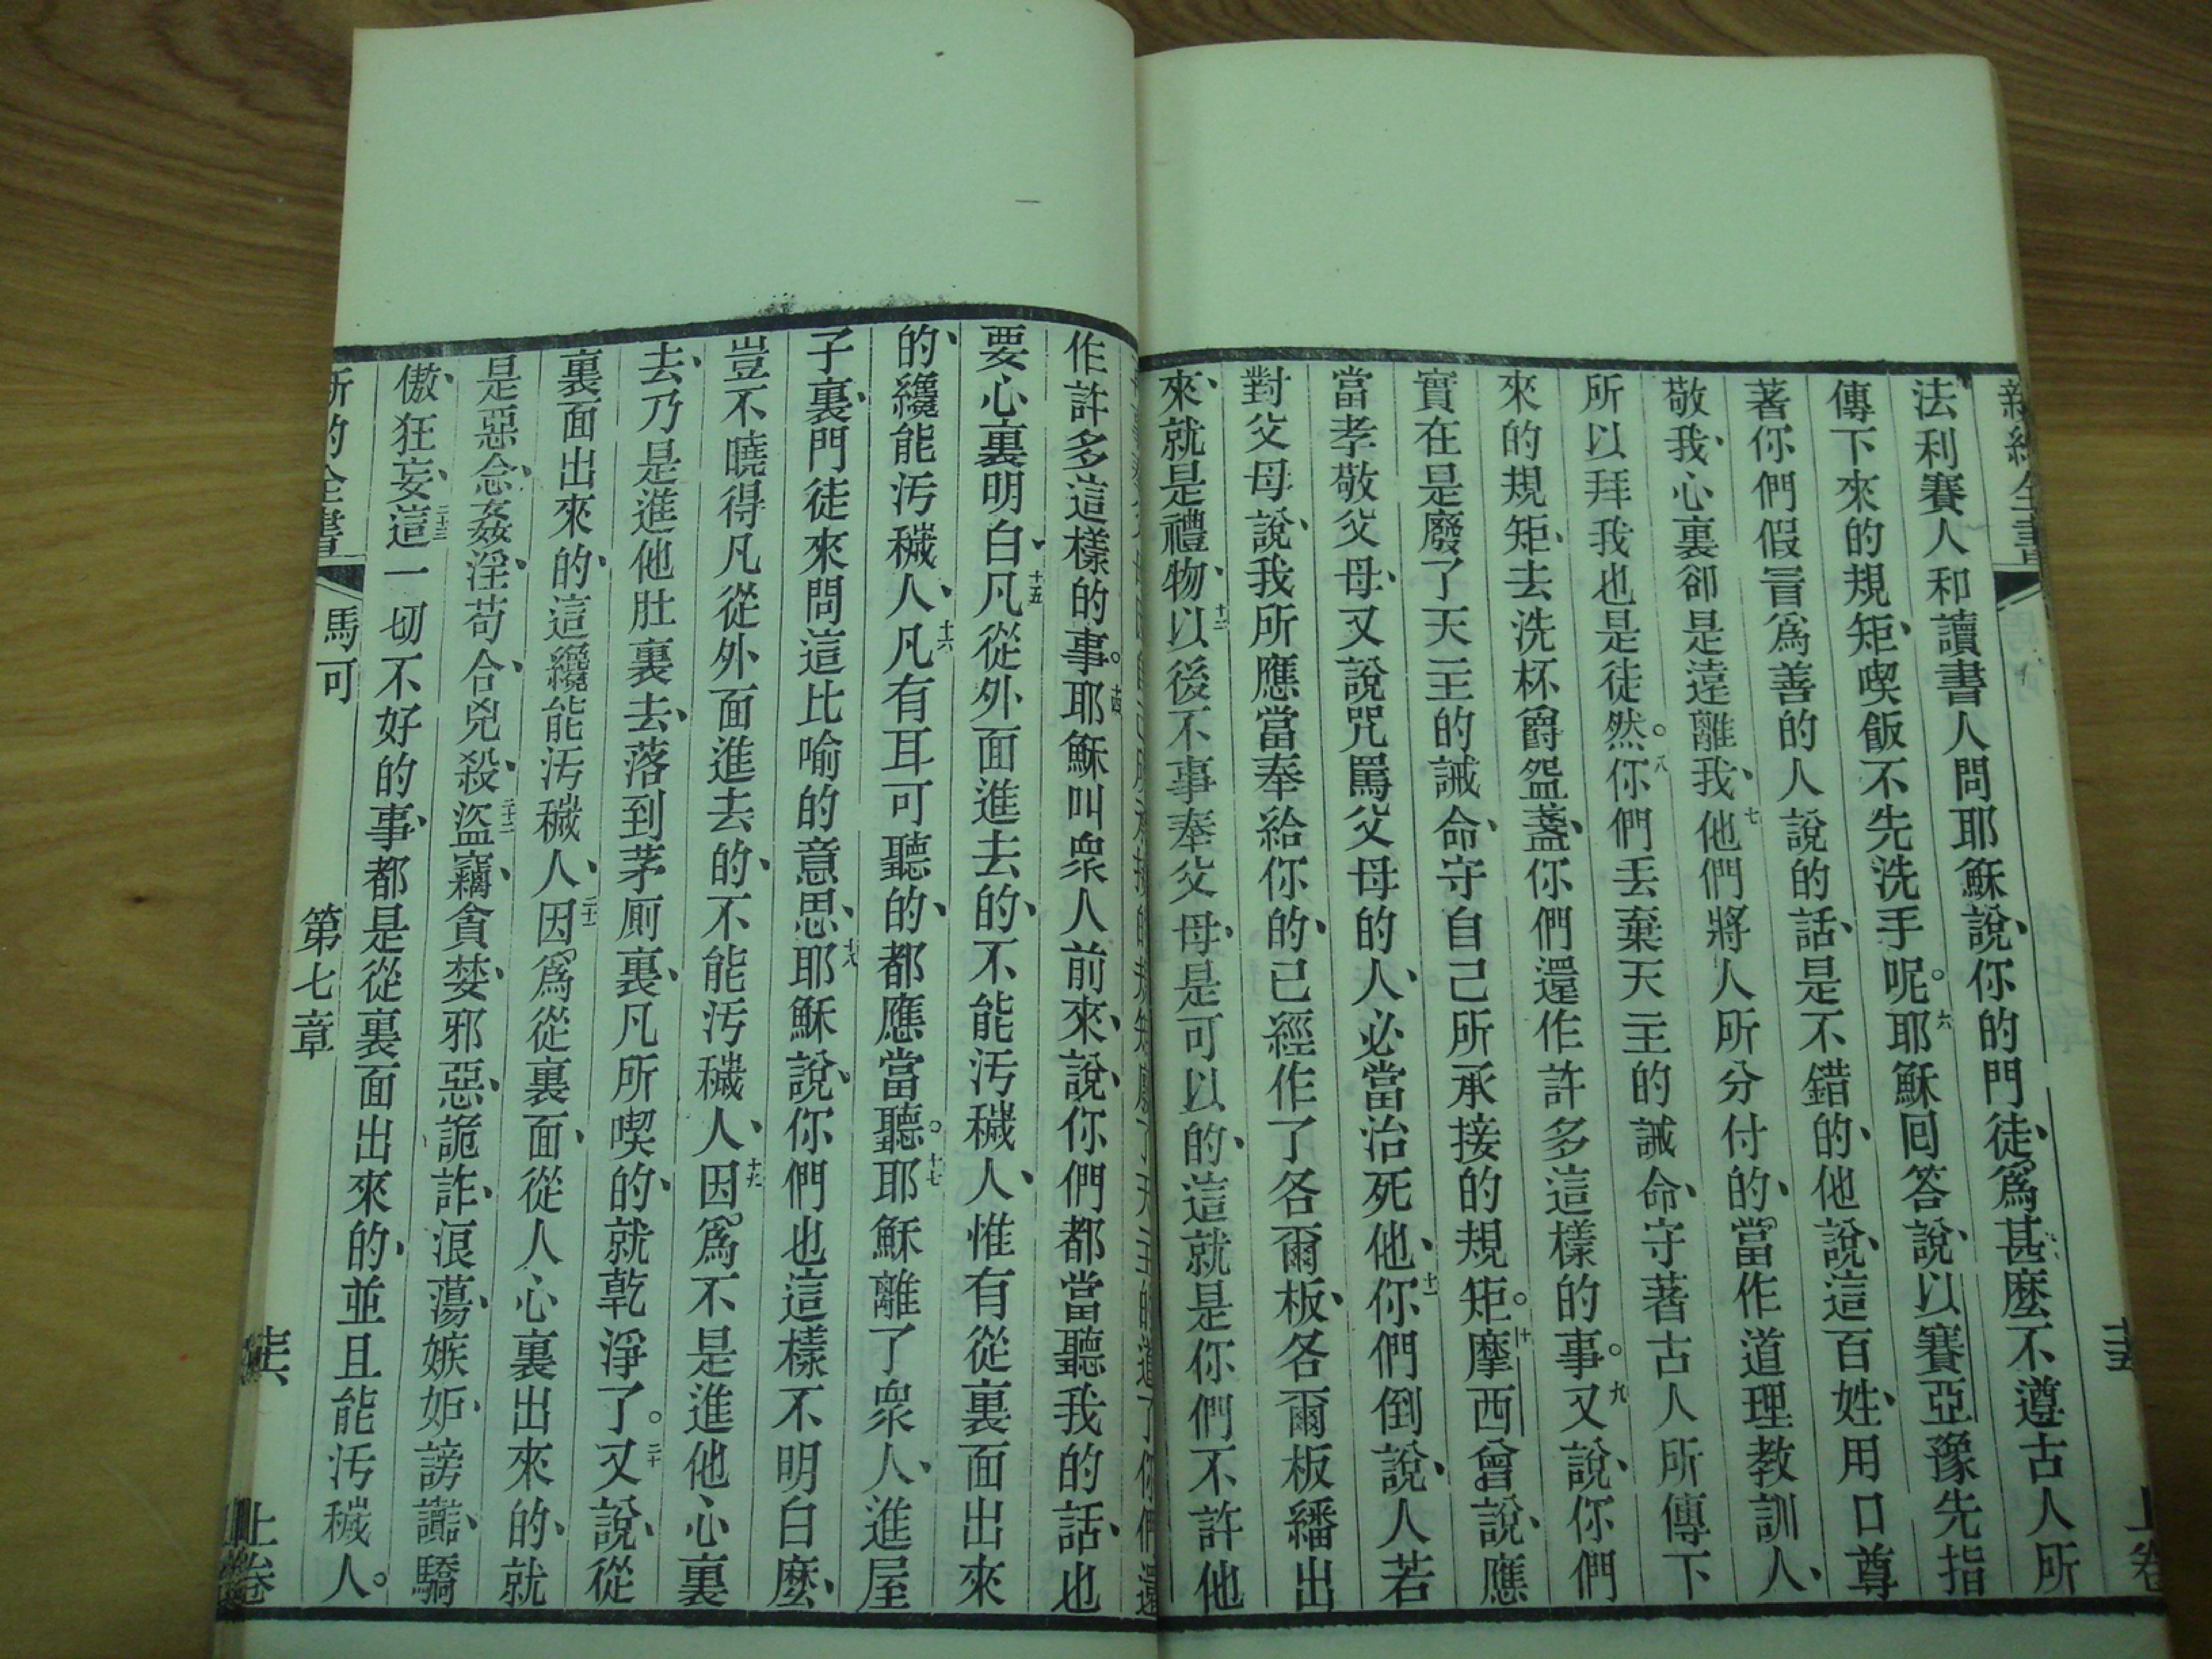 新約全書
法利賽人和讀書人問耶穌說、你的門徒、爲甚麼不遵古人所
傳下來的規矩、喫飯不先洗手呢。六耶穌回答說、以賽亞豫先指
著你們假冒爲善的人說的話、是不錯的、他說、這百姓、用口尊
敬我、心裏卻是遠離我、七他們將人所分付的、當作道理教訓人、
所以拜我也是徒然。八你們丟棄天主的誡命、守著古人所傳下
來的規矩、去洗杯爵盌盞、你們還作許多這樣的事。九又說、你們
實在是廢了天主的誡命、守自己所承接的規矩。十摩西曾說、應
當孝敬父母、又說咒罵父母的人、必當治死他、十一你們倒說、人若
對父母說、我所應當奉給你的、已經作了各爾板、各爾板繙出
來、就是禮物、十二以後不事奉父母、是可以的、這就是你們不許他
作許多這樣的事。十四耶穌叫衆人前來、說、你們都當聽我的話、也
要心裏明白、十五凡從外面進去的、不能汚穢人、惟有從裏面出來
的、纔能汚穢人、十六凡有耳可聽的、都應當聽。十七耶穌離了衆人、進屋
子裏、門徒來問這比喻的意思、十八耶穌說、你們也這樣不明白麼、
豈不曉得凡從外面進去的、不能汚穢人、十九因爲不是進他心裏
去、乃是進他肚裏去、落到茅厠裏、凡所喫的、就乾淨了。二十又說、從
裏面出來的、這纔能汚穢人、二十一因爲從裏面、從人心裏出來的、就
是惡念、姦淫、苟合、兇殺、二十二盜竊、貪婪、邪惡、詭詐、浪蕩、嫉妒、謗讟、驕
傲、狂妄、二十三這一切不好的事、都是從裏面出來的、並且能汚穢人。
新約全書 馬可 第七章 上卷